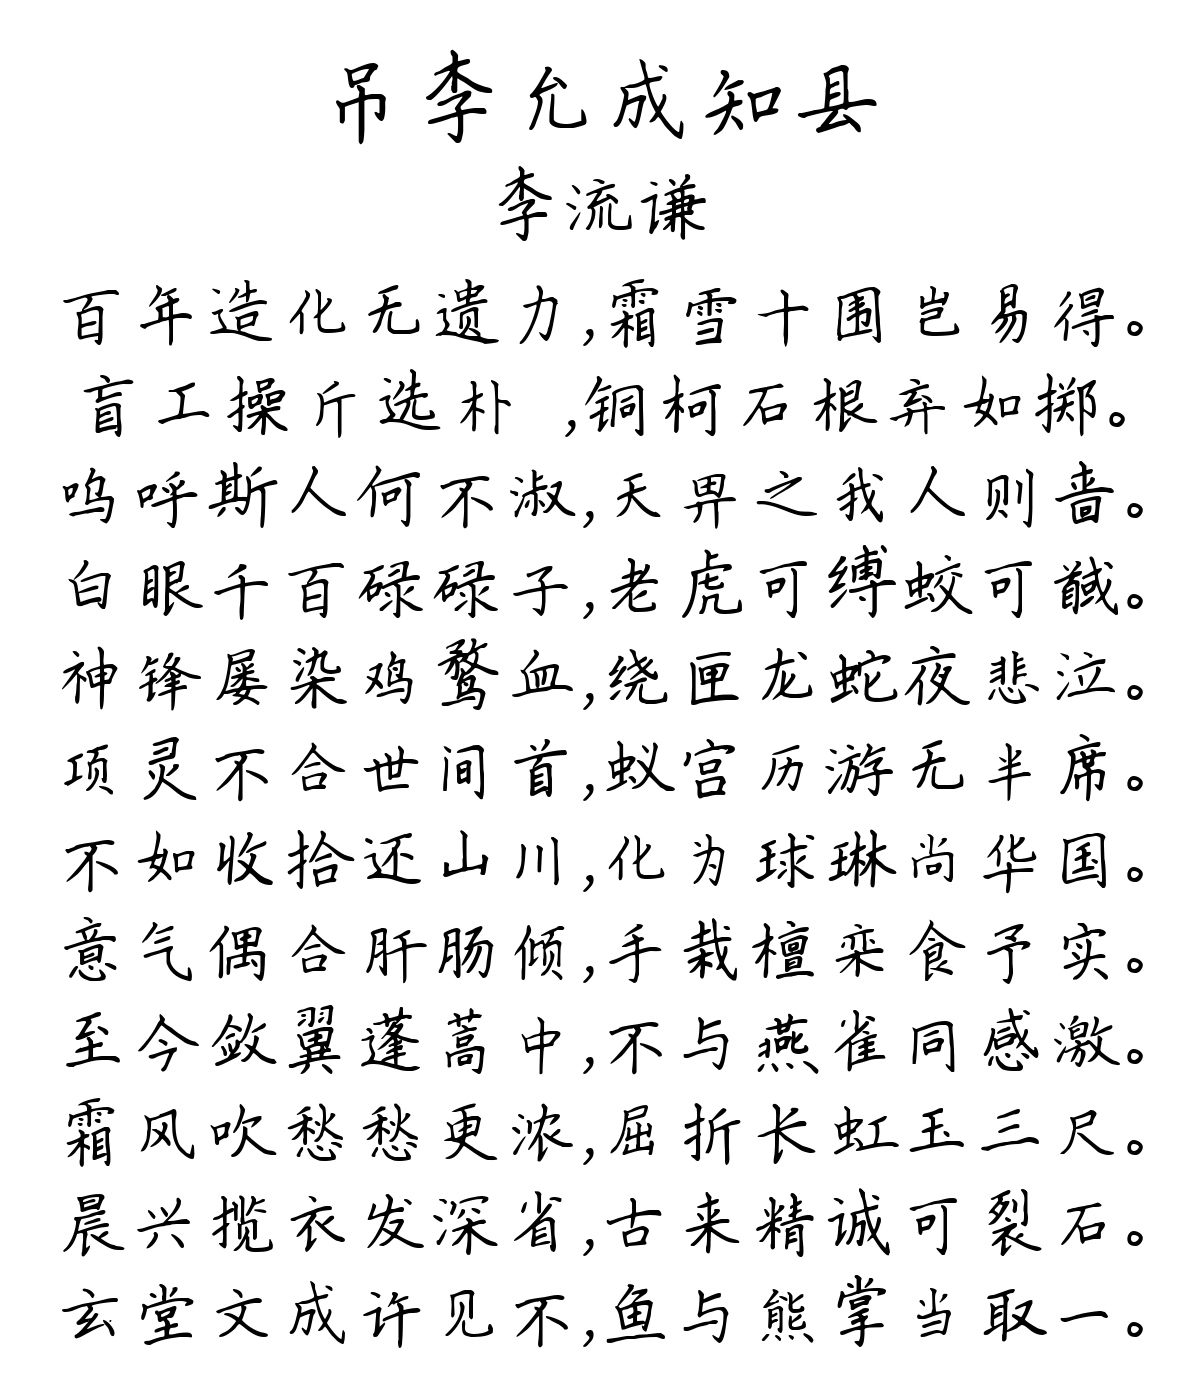 吊李允成知县
李流谦
百年造化无遗力,霜雪十围岂易得。
盲工操斤选朴 ,铜柯石根弃如掷。
呜呼斯人何不淑,天畀之我人则啬。
白眼千百碌碌子,老虎可缚蛟可馘。
神锋屡染鸡鹜血,绕匣龙蛇夜悲泣。
项灵不合世间首,蚁宫历游无半席。
不如收拾还山川,化为球琳尚华国。
意气偶合肝肠倾,手栽檀栾食予实。
至今敛翼蓬蒿中,不与燕雀同感激。
霜风吹愁愁更浓,屈折长虹玉三尺。
晨兴揽衣发深省,古来精诚可裂石。
玄堂文成许见不,鱼与熊掌当取一。